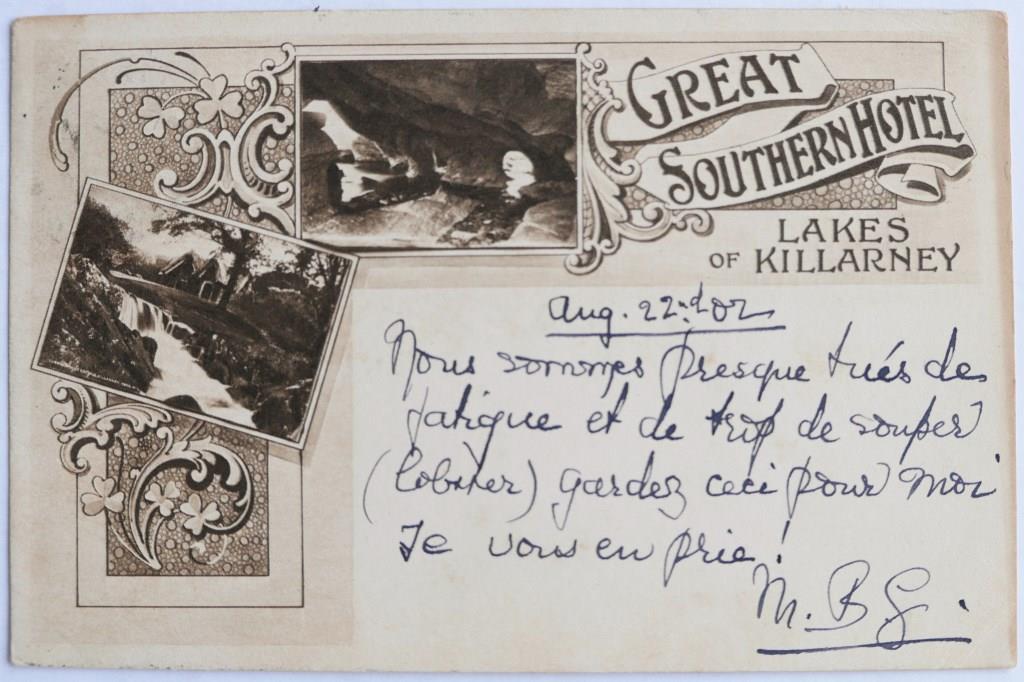 GREAT
SOUTHERN HOTEL
LAKES
OF KILLARNEY
Aug. 22nd 02
Nous sommes presque tués de
fatigue et de trop de souper
(lobster) gardez ceci pour moi
Je vous en prie!
M. B G.